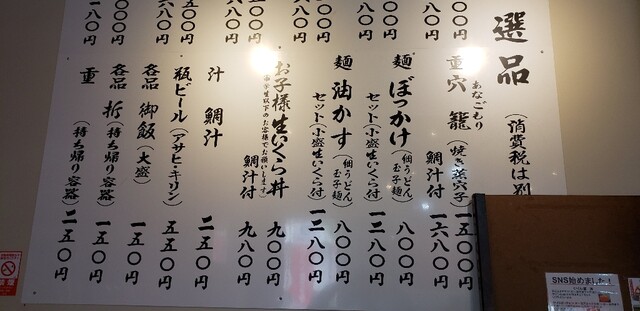 選品
(消費税は別
あなごもり
重 穴籠 (焼き蒸穴子) 一五〇〇円
鯛汁付 一六八〇円
麺 ぼっかけ (細うどん 玉子麺) 八〇〇円
セット (小盛生いくら付) 一三八〇円
麺 油かす (細うどん 玉子麺) 八〇〇円
セット (小盛生いくら付) 一三八〇円
お子様生いくら丼 九〇〇円
(中学生以下のお客様でお願いします)
鯛汁付 九八〇円
汁 鯛汁 二五〇円
瓶ビール (アサヒ・キリン) 五五〇円
各品 御飯 (大盛) 一五〇円
各品 折 (持ち帰り容器) 一五〇円
重 (持ち帰り容器) 二五〇円
SNS始めました!